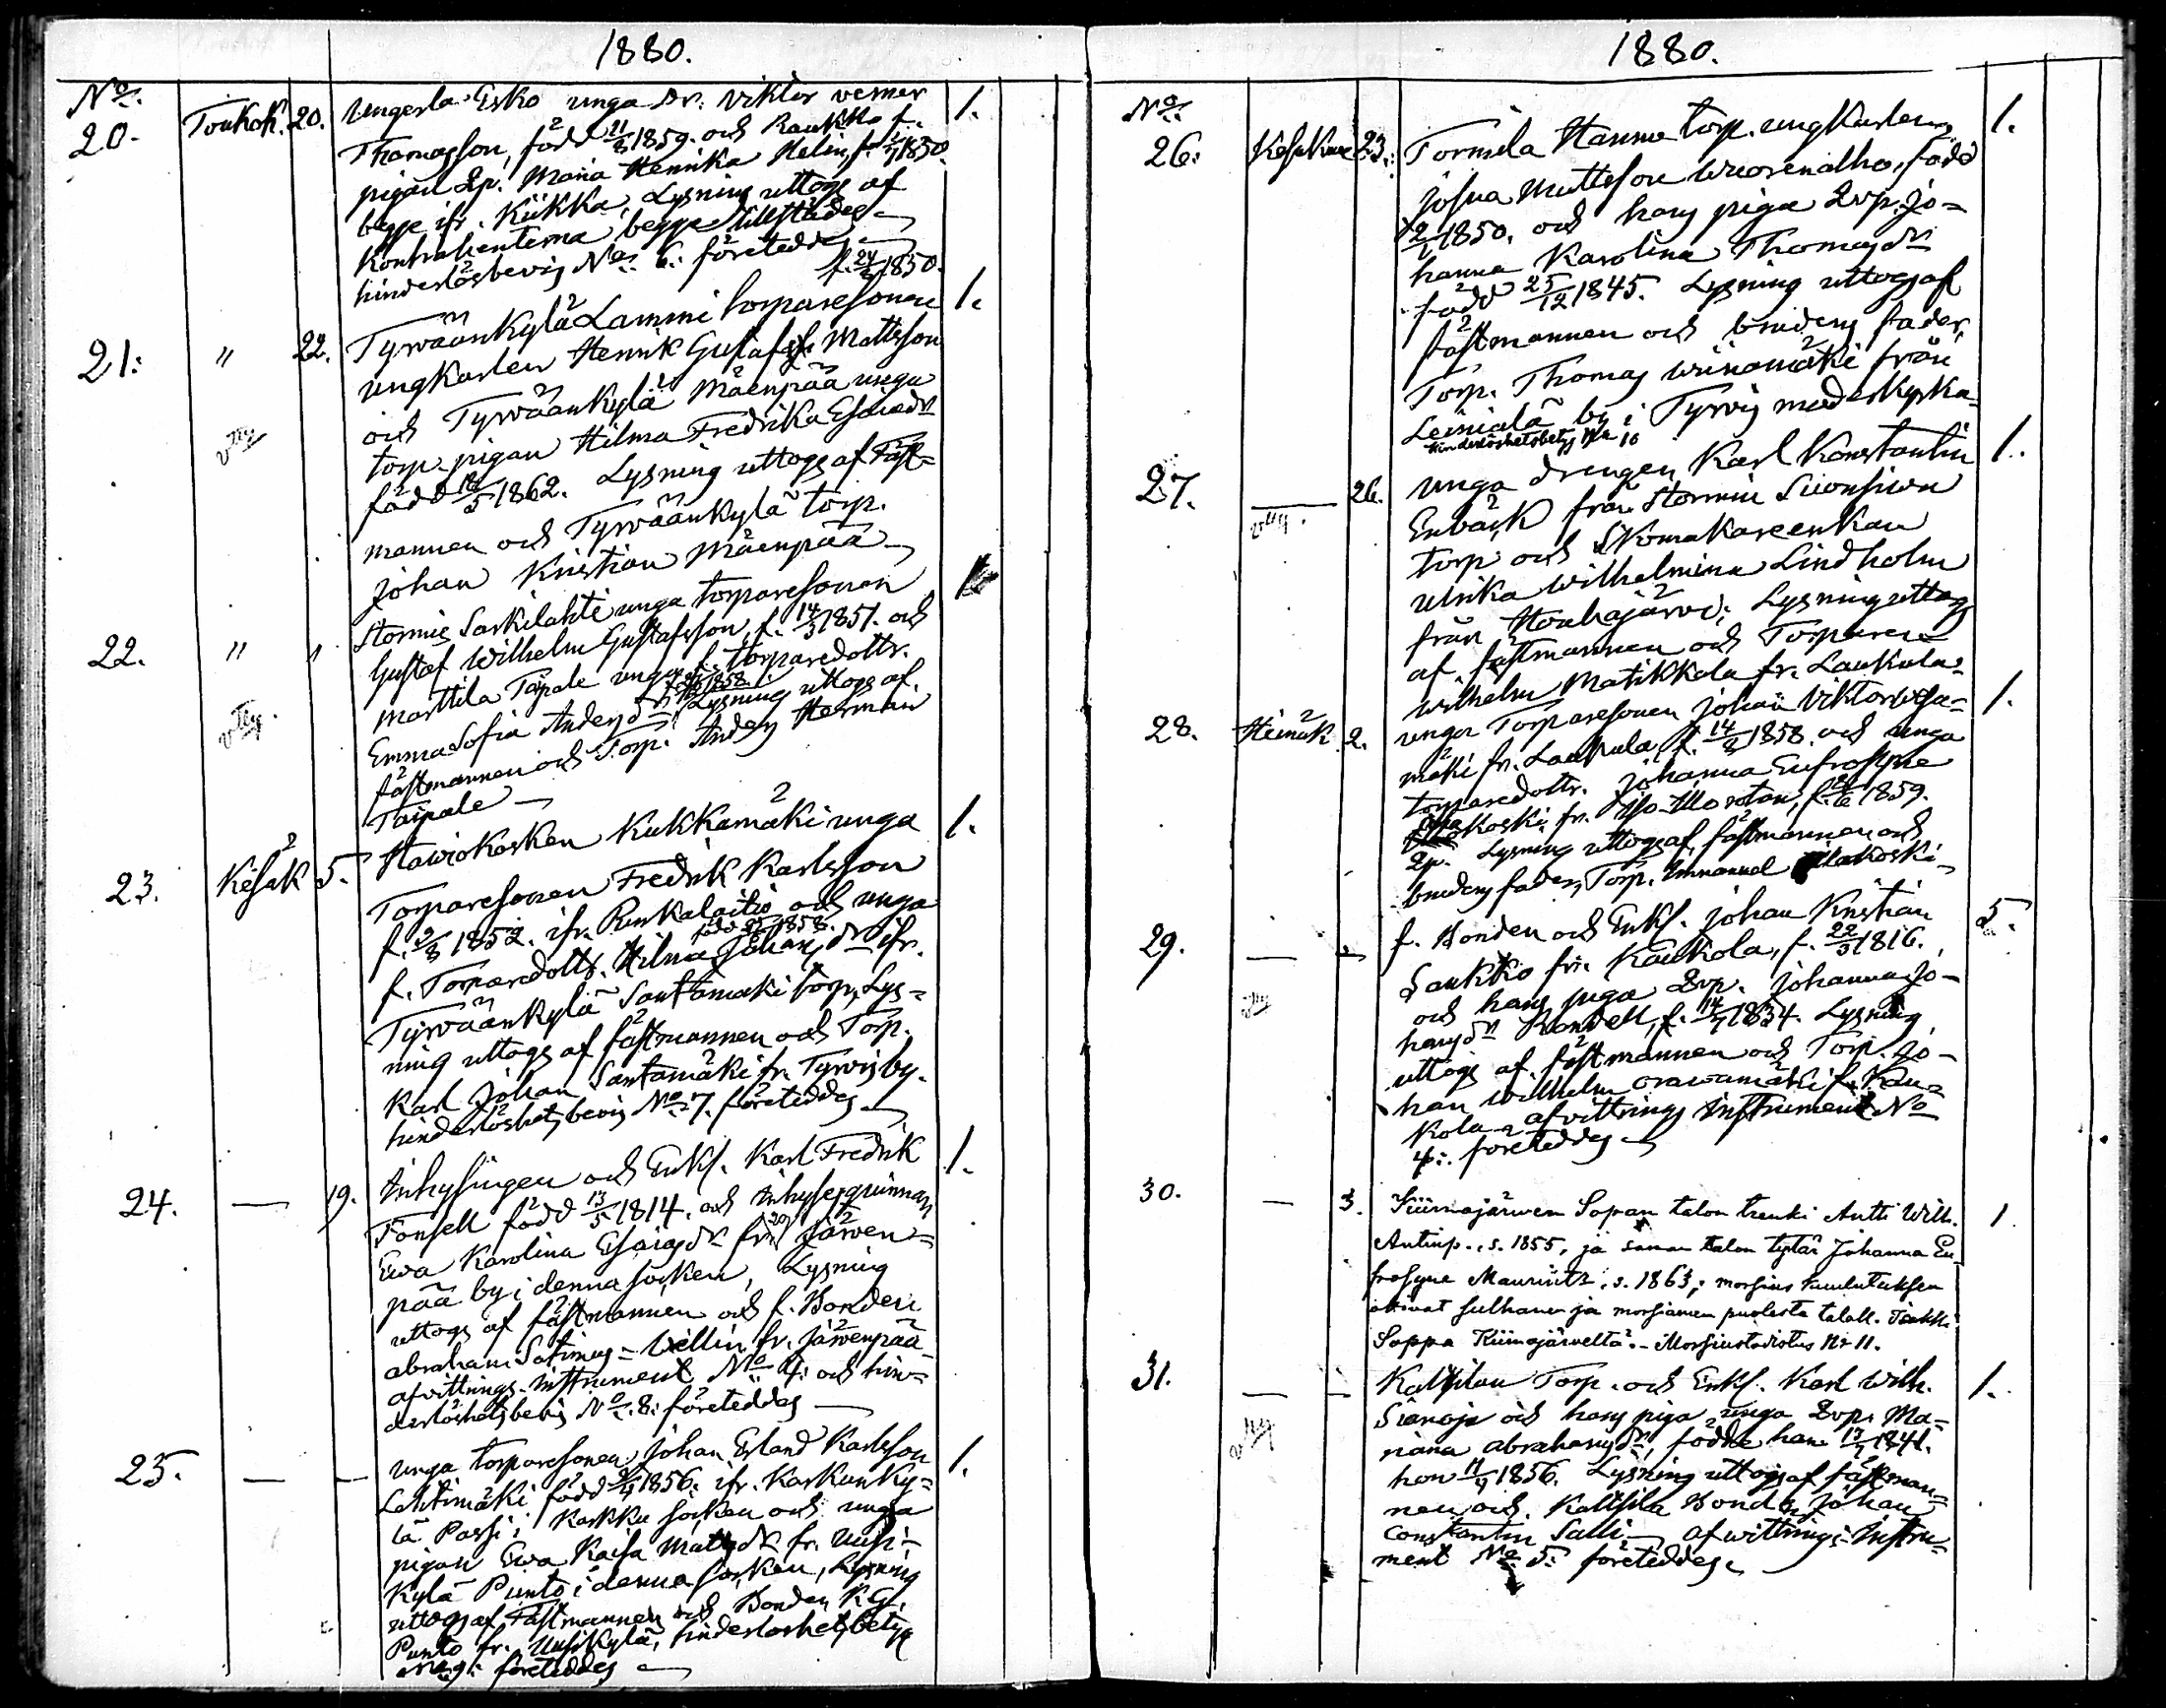 1880.
No.
20. Toukok. 20. Ungerla Esko unga Dr. Viktor Verner 1.
Thomasson, född 11/8 1859. och Raukko f.
pigan Lp. Maria Henrika Helin, 1850.
begge ifr. Kiikka, Lysning uttogs af
Kontrahenterna begge tillstädes
hinderlösbevis No. 6: företeddes
f. 24/8 1850.
21: " 22. Tyrväänkylä Lammi torparesonen 1.
ungkarlen Henrik Gustafs. Mattsson
och Tyrväänkylä Mäenpää unga
torp. pigan Hilma Fredrika Esaiasdr
född 18/5 1862. Lysning uttogs af Fäst-
mannen och Tyrväänkylä torp.
Johan Kristian Mäenpää
22. " " Stormis Saskilahti unga torparesonen 1
Gustaf Wilhelm Gustafsson, f. 14/3 1851. och
Marttila Taipale unga torparedottr.
1858
Emma Sofia Andersdr Lysning uttogs af
fästmannen och Torp. Anders Herman
Taipale
23. Kesäk 5. Hawiokosken Kukkamäki unga 1.
Torparesonen Fredrik Karlsson
f. 2/8 1852. ifr. Punkalaitio och unga
född 1858.
f. Torparedottr. Hilma Johansdr ifr.
Tyrväänkylä Santamäki torp, Lys-
ning uttogs af fästmannen och Torp.
Karl Johan Santamäki fr. Tyrvis by.
hinderlöshetsbevis No 7. företeddes
24. — 19. Inhysingen och Enkl. Karl Fredrik 1.
Fonsell född 13/5 1814. och Inhysesqvinnan
Ewa Karolina Esaiasdr från Järven-
pää by i denna socken, Lysning
uttogs af fästmannen och f. Bonden
Abraham Satimus-Wellin fr. Järvenpää
afvittrings-instrument No 4: och hin-
derlöshetsbevis No. 8: företeddes
25. — — unga torparesonen Johan Erland Karlsson 1.
Lehtimäki född 1856. ifr. Karkunky-
lä Passi i Karkku socken och unga
pigan Ewa Kaisa Mattsdr fr. Uusi-
kylä Punto i denna socken, Lysning
uttogs af Fästmannen och Bonden K. G.
Punto fr. Uusikylä, hinderlöshetsbetyg
No 9: företeddes
1880.
No.
26: Kesäkuu 23: Tormila Hannu torp. ungkarlen 1.
Josua Mattsson Wuorenalho, född
1850. och hans piga Lvp. Jo-
hanna Karolina Thomasdr
född 25/12 1845. Lysning uttogs af
fästmannen och brudens fader
Torp. Thomas Wiinamäki från
Leiniälä by i Tyrvis moderkyrka
hinderlöshetsbetyg No 10
27. — 26. unga drengen Karl Konstantin 1.
Enbäck från Stormi
torp och Skomakareenkan
Ulrika Wilhelmina Lindholm
från Houhajärvi; Lysning uttogs
af fästmannen och Torparen
Wilhelm Matikkala fr. Laukula
28. Heinäk 2. unga Torparesonen Johan Viktor 1.
mäki fr. Laukula, f. 14/8 1858. och unga
torparedottr. Johanna Eufrosyne
koski fr. 1859.
Lp. Lysning uttogs af fästmannen och
brudens fader, Torp. Immanuel
29. — f. Bonden och Enkl. Johan Kristian 5.
Saukko fr. Kaukola, f. 22/3 1816.
och hans piga Lvp. Johanna Jo-
hansdr Randell, f. 1834. Lysning
uttogs af fästmannen och Torp. Jo-
han Wilhelm Orawamäki f. Kau-
kola afvittrings instrument No
4: företeddes
30. — 3. Kiimajärwen Sopan talon trenki Antti Wilh. 1
Antinp., s. 1855, ja saman talon tytär Johanna Eu
frosyne Mauriints., s. 1863; morsius kuulutuksen
ottivat sulhanen ja morsiamen puolesta talall. Jaakko
Soppa Kiimajärveltä. - Morsiustodistus No 11.
31. — — Kaltsilan Torp. och Enkl. Karl Wilh. 1.
Sianoja och hans piga unga Lvp. Ma-
riana Abrahamsdr, födde han 1841.
hon 1856. Lysning uttogs af fästman-
nen och Kaltsila Bonden Johan
Constantin Salli. afwittrings-instru-
ment No 5: företeddes